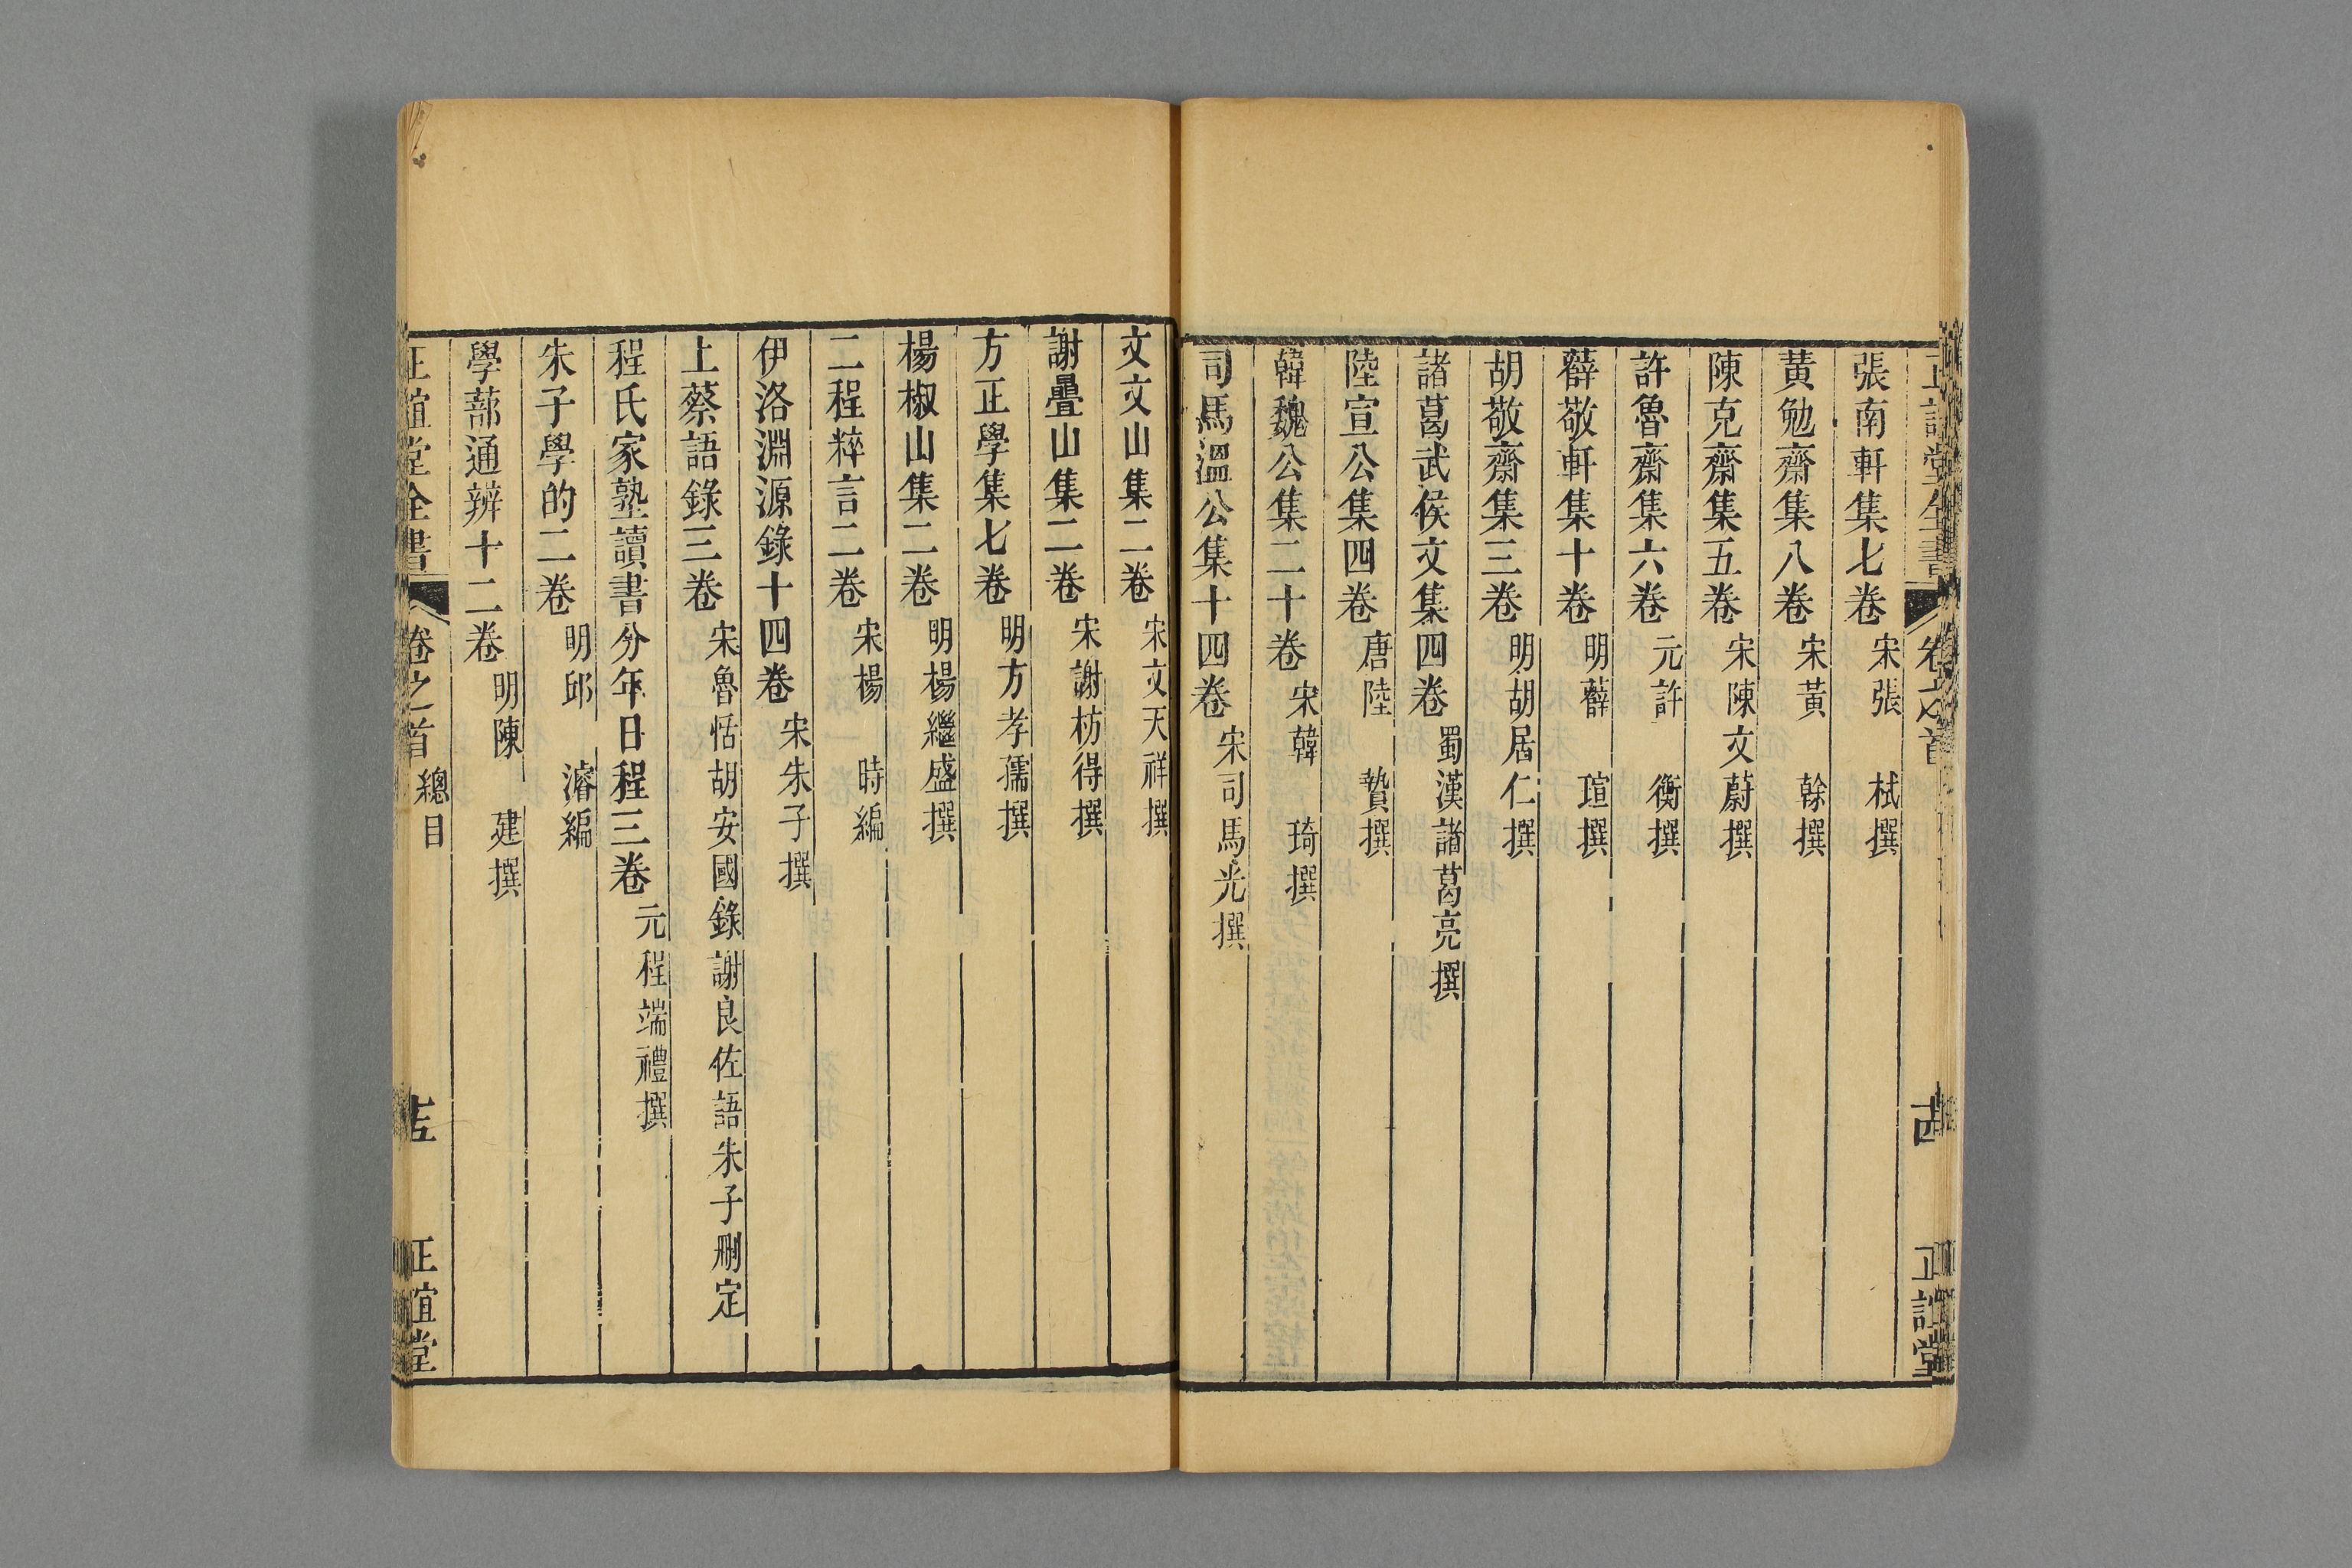 張南軒集七卷 宋張 栻撰
黃勉齋集八卷 宋黃 榦撰
陳克齋集五卷 宋陳文蔚撰
許魯齋集六卷 元許 衡撰
薛敬軒集十卷 明薛 瑄撰
胡敬齋集三卷 明胡居仁撰
諸葛武侯文集四卷 蜀漢諸葛亮撰
陸宣公集四卷 唐陸 贄撰
韓魏公集二十卷 宋韓 琦撰
司馬溫公集十四卷 宋司馬光撰
文文山集二卷 宋文天祥撰
謝疊山集二卷 宋謝枋得撰
方正學集七卷 明方孝孺撰
楊椒山集二卷 明楊繼盛撰
二程粹言二卷 宋楊 時編
伊洛淵源錄十四卷 宋朱子撰
上蔡語錄三卷 宋魯恬胡安國錄謝良佐語朱子刪定
程氏家塾讀書分年日程三卷 元程端禮撰
朱子學的二卷 明邱 濬編
學蔀通辨十二卷 明陳 建撰
正誼堂全書 卷之首 總目 正誼堂